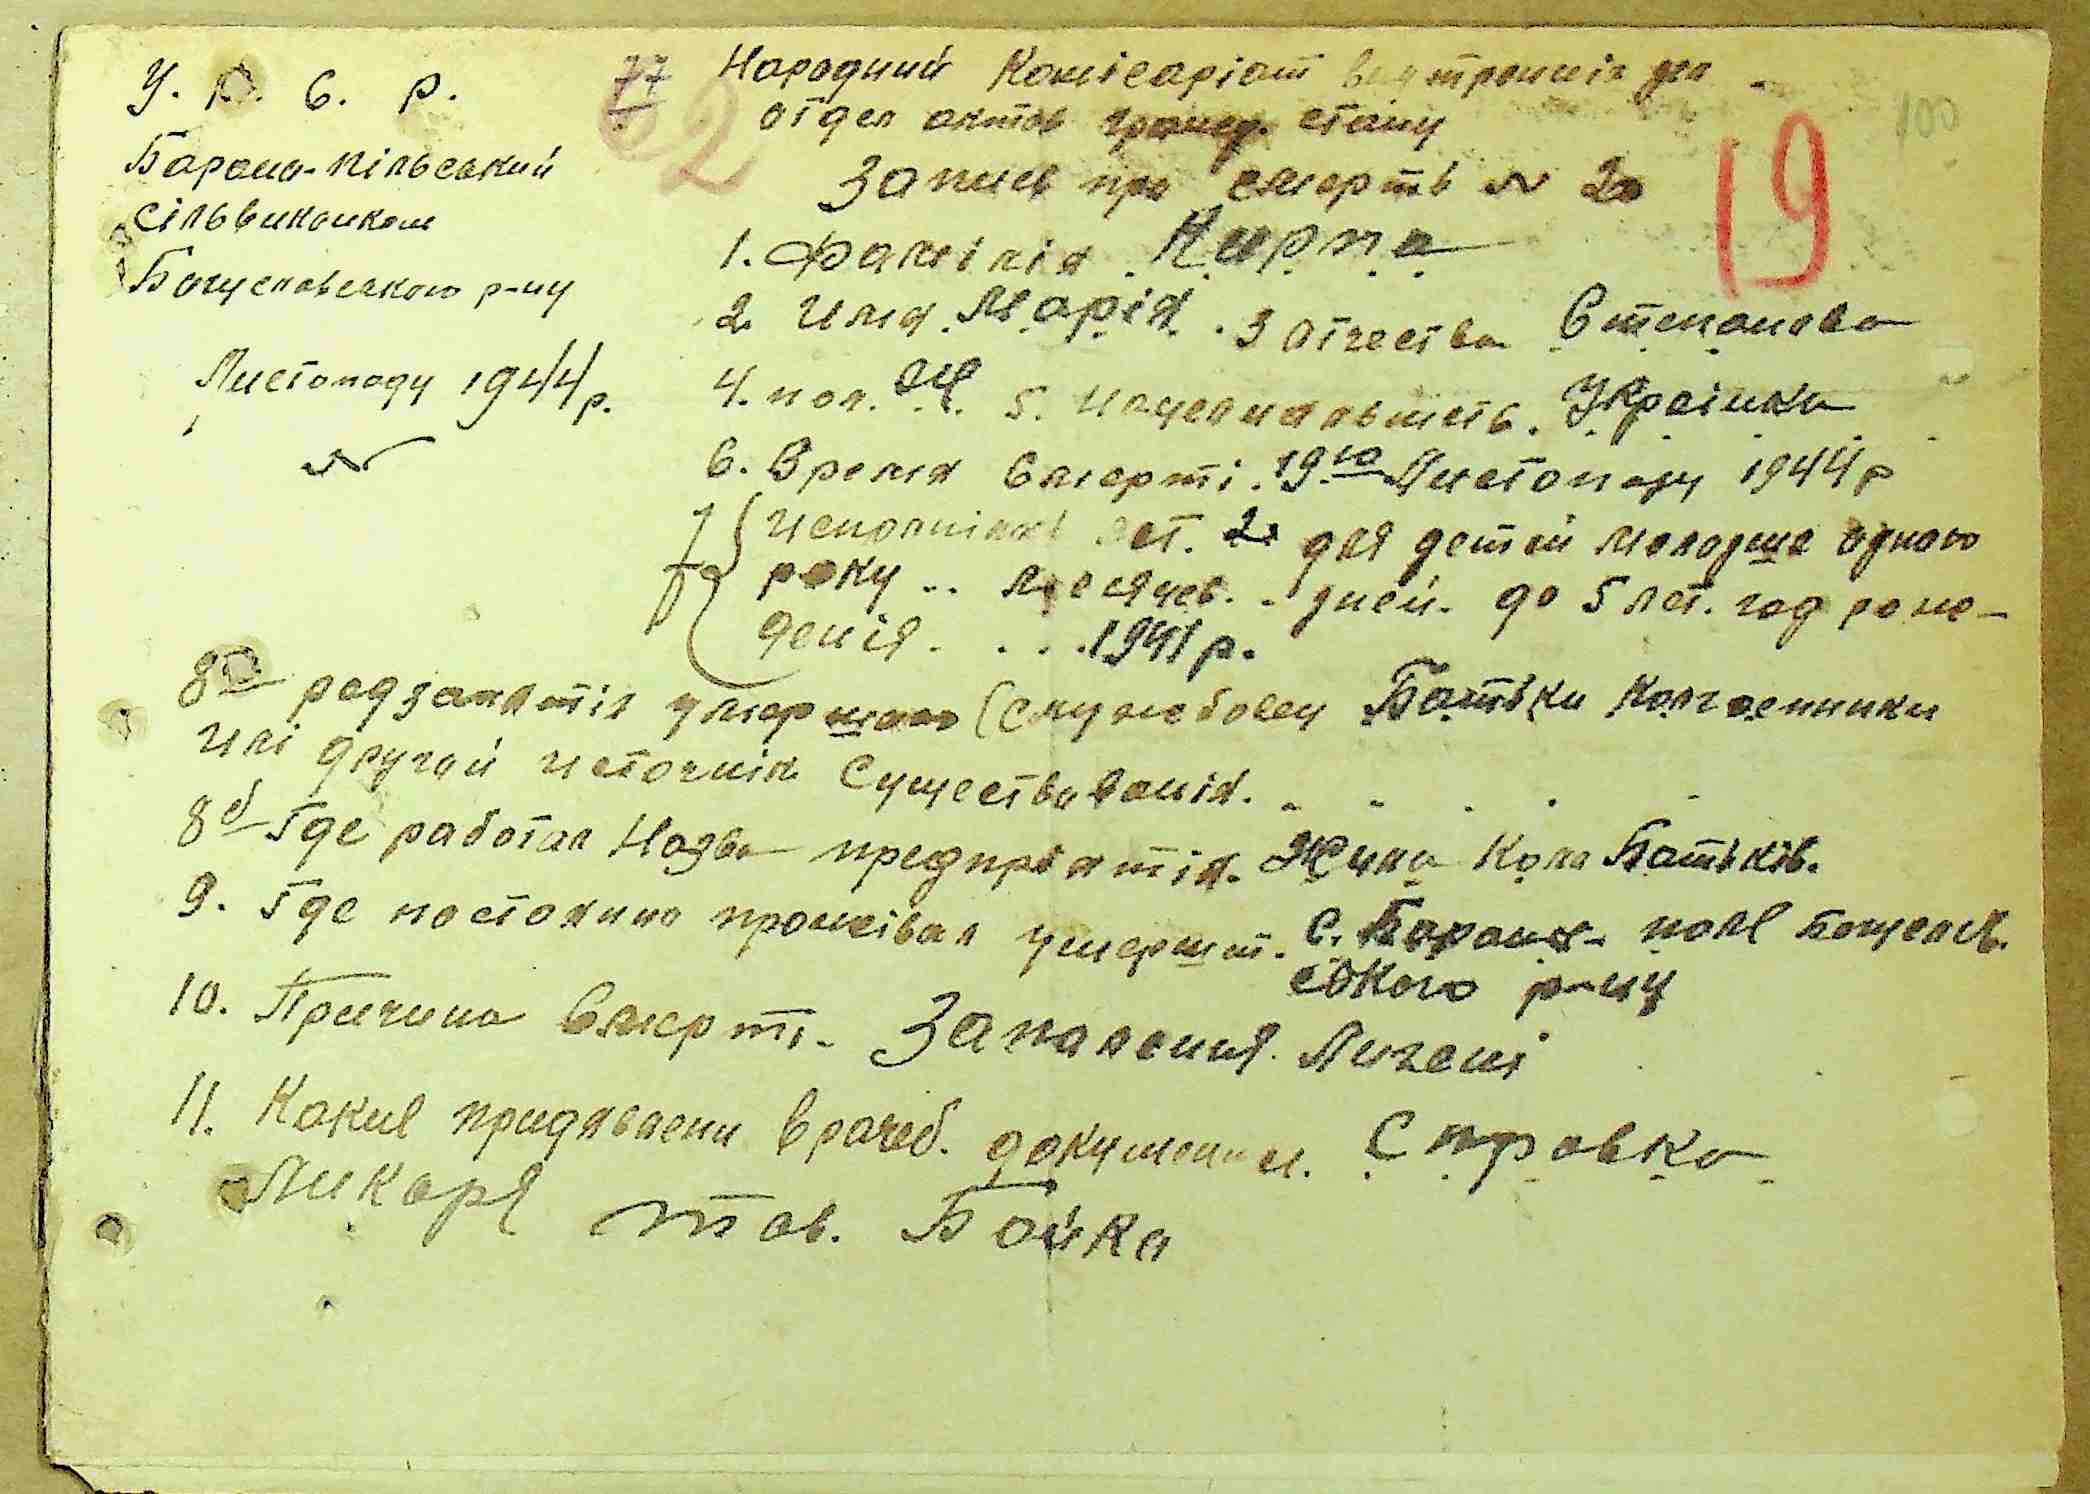 У. Р. С. Р.
Барано-пільський
сільвиконком
Богуславського р-ну
Листопаду 1944 р.
№
77
62
19
100
Народний Комісаріат внутренніх дел
отдел актов гражд. стану
Запись про смерть № 20
1. Фамілія Кирпа
2. Имя Марія. 3 Отчества Степанова
4. пол. Ж. 5. Нацеональность. Українка
6. Время Смерті. 19го Листопаду 1944 р
7 Исполнілось лет. 2 для детей молодше одного
року .. месяцев. . дней. до 5 лет. год рож-
денія. . . . 1941 р.
8а род занятія умершого (служебовец Батьки колгоспники
илі другой источнік Существованія.
8б Где работал Назва предпріятія. Жила коло Батьків.
9. Где постоянно прожівал умерш. с. Барани- полі Богуслав-
ського р-ну
10. Причина Смерті. Запалення Лигені
11. Какие придявлени врачеб. документи. Справка
Ликаря тов. Бойка